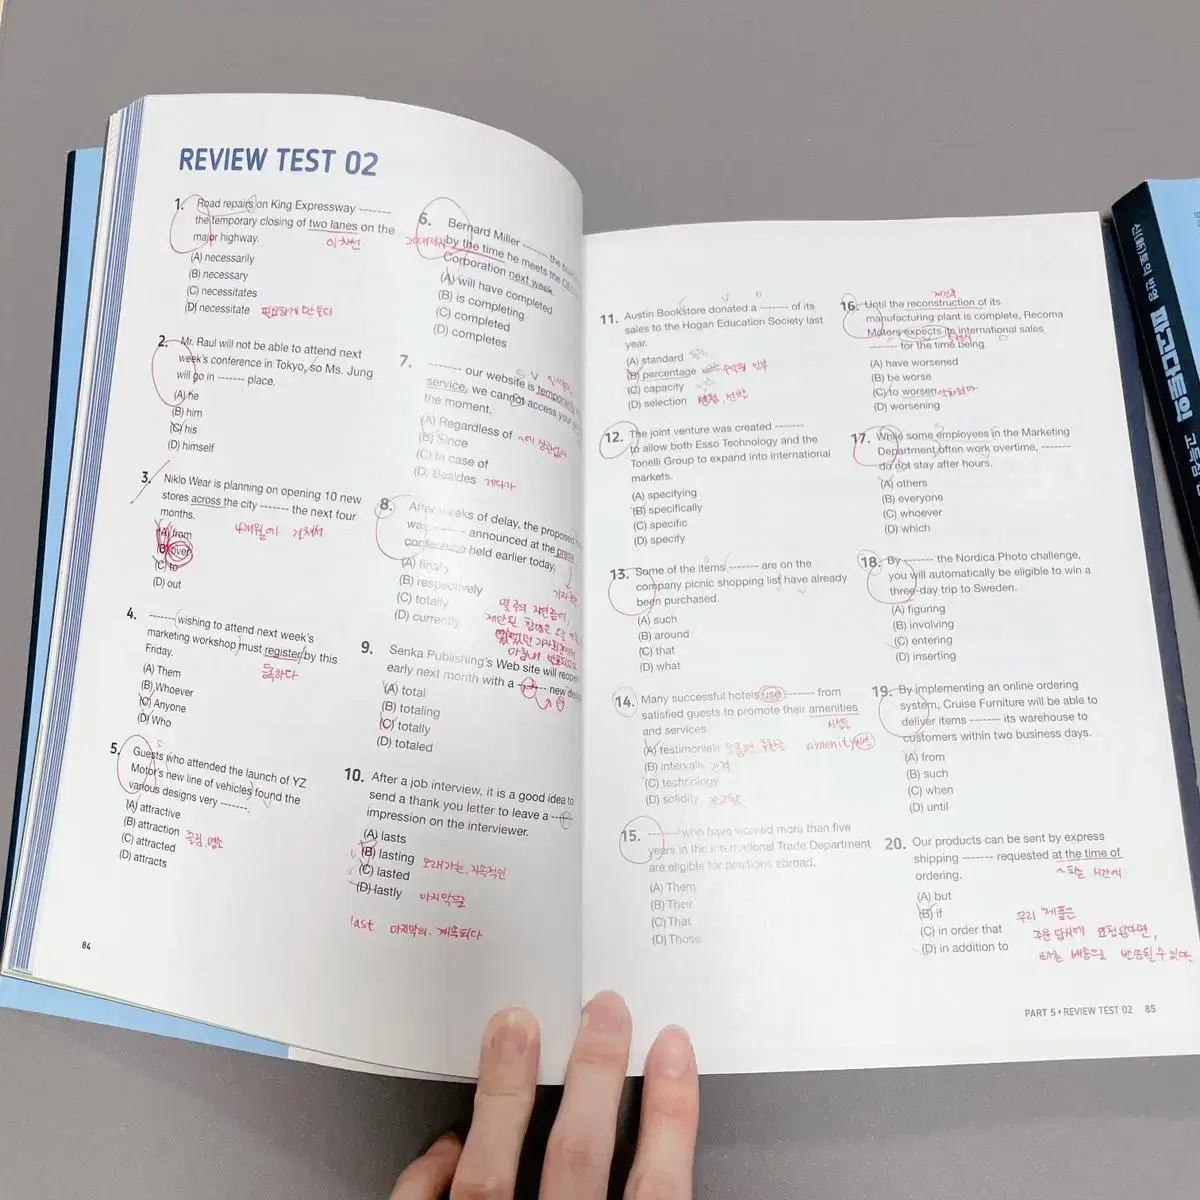 REVIEW TEST 02
1. Road repairs on King Expressway -------
the temporary closing of two lanes on the
major highway.
이차선
(A) necessarily
(B) necessary
(C) necessitates
(D) necessitate 필요하게 만들다
2. Mr. Raul will not be able to attend next
week's conference in Tokyo, so Ms. Jung
will go in ------- place.
(A) he
(B) him
(C) his
(D) himself
3. Niklo Wear is planning on opening 10 new
stores across the city ------- the next four
months.
4개월에 걸쳐서
(A) from
(B) over
(C) to
(D) out
4. ------- wishing to attend next week's
marketing workshop must register by this
Friday.
등록하다
(A) Them
(B) Whoever
(C) Anyone
(D) Who
5. Guests who attended the launch of YZ
Motor's new line of vehicles found the
various designs very -------.
(A) attractive
(B) attraction 끌림, 명소
(C) attracted
(D) attracts
84
6. Bernard Miller ------- the
by the time he meets the CEO
Corporation next week.
(A) will have completed
(B) is completing
(C) completed
(D) completes
7. ------- our website is temporarily
service, we cannot access your
the moment.
(A) Regardless of ~에 상관없이
(B) Since
(C) In case of
(D) Besides 게다가
8. After weeks of delay, the proposed
was ------- announced at the press
conference held earlier today.
(A) finally
(B) respectively
(C) totally
(D) currently
9. Senka Publishing's Web site will reopen
early next month with a ------- new
(A) total
(B) totaling
(C) totally
(D) totaled
10. After a job interview, it is a good idea to
send a thank you letter to leave a
impression on the interviewer.
(A) lasts
(B) lasting 오래가는, 지속적인
(C) lasted
(D) lastly 마지막으로
last 마지막의, 계속되다
11. Austin Bookstore donated a ------- of its
sales to the Hogan Education Society last
year.
(A) standard
(B) percentage
(C) capacity
(D) selection
12. The joint venture was created -------
to allow both Esso Technology and the
Tonelli Group to expand into international
markets.
(A) specifying
(B) specifically
(C) specific
(D) specify
13. Some of the items ------- are on the
company picnic shopping list have already
been purchased.
(A) such
(B) around
(C) that
(D) what
14. Many successful hotels use ------- from
satisfied guests to promote their amenities
and services.
시설
(A) testimonials amenity
(B) intervals 간격
(C) technology
(D) solidity
15. ------- who have worked more than five
years in the International Trade Department
are eligible for positions abroad.
(A) Them
(B) Their
(C) That
(D) Those
재건축
16. Until the reconstruction of its
manufacturing plant is complete, Recoma
Motors expects its international sales
------- for the time being.
(A) have worsened
(B) be worse
(C) to worsen 악화되다
(D) worsening
17. While some employees in the Marketing
Department often work overtime, -------
do not stay after hours.
(A) others
(B) everyone
(C) whoever
(D) which
18. By ------- the Nordica Photo challenge,
you will automatically be eligible to win a
three-day trip to Sweden.
(A) figuring
(B) involving
(C) entering
(D) inserting
19. By implementing an online ordering
system, Cruise Furniture will be able to
deliver items ------- its warehouse to
customers within two business days.
(A) from
(B) such
(C) when
(D) until
20. Our products can be sent by express
shipping ------- requested at the time of
ordering.
~하는 시간에
(A) but
(B) if
(C) in order that
(D) in addition to
우리 제품은
주문 당시에 요청된다면,
빠른 배송으로 발송될 수 있다.
PART 5 • REVIEW TEST 02 85
신(新)토익 반영
파고다토익